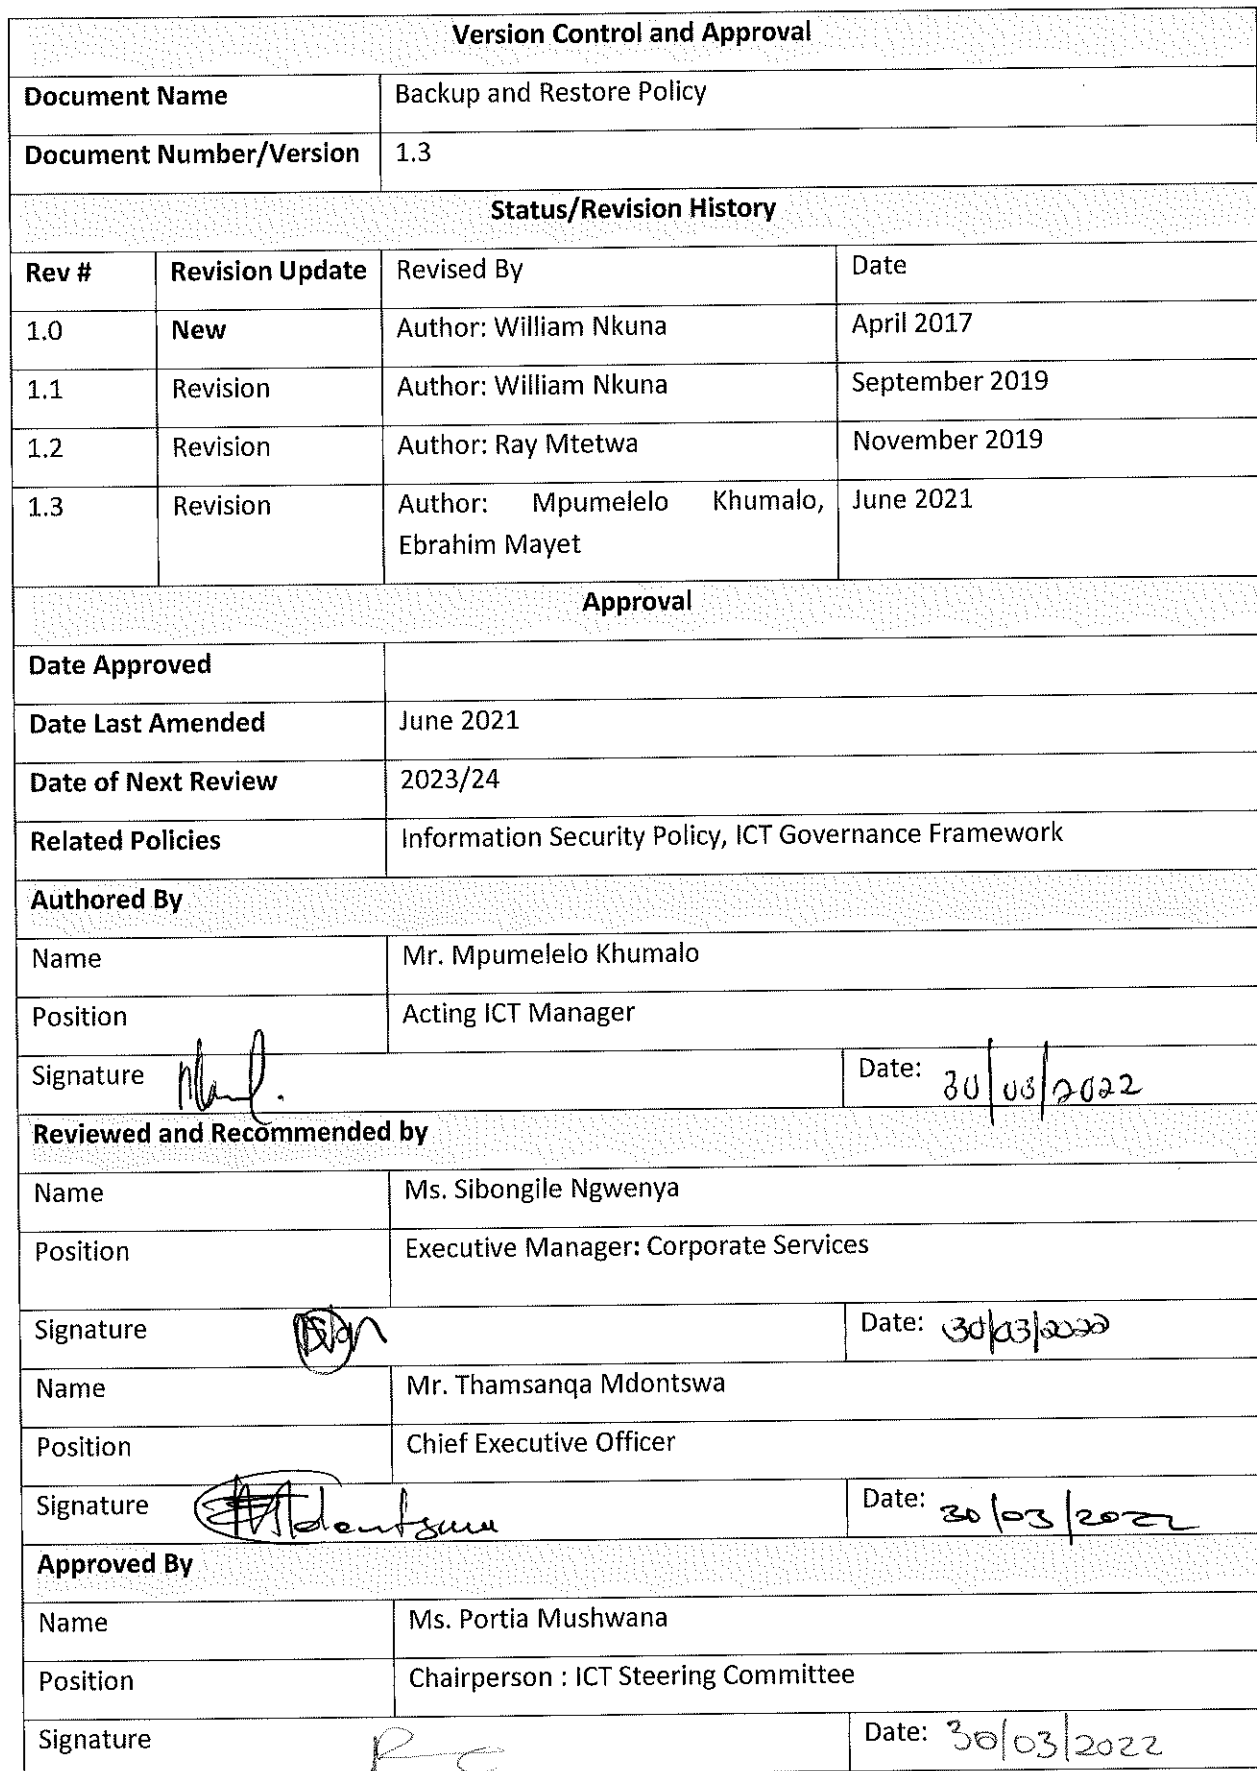 Version Control and Approval
Document Name Backup and Restore Policy
Document Number/Version 1.3
Status/Revision History
Rev # Revision Update Revised By Date
1.0 New Author: William Nkuna April 2017
1.1 Revision Author: William Nkuna September 2019
1.2 Revision Author: Ray Mtetwa November 2019
1.3 Revision Author: Mpumelelo Khumalo, June 2021
Ebrahim Mayet
Approval
Date Approved
Date Last Amended June 2021
Date of Next Review 2023/24
Related Policies Information Security Policy, ICT Governance Framework
Authored By
Name Mr. Mpumelelo Khumalo
Position Acting ICT Manager
Signature Date: 30/03/2022
Reviewed and Recommended by
Name Ms. Sibongile Ngwenya
Position Executive Manager: Corporate Services
Signature Date: 30/03/2022
Name Mr. Thamsanqa Mdontswa
Position Chief Executive Officer
Signature Date: 30/03/2022
Approved By
Name Ms. Portia Mushwana
Position Chairperson : ICT Steering Committee
Signature Date: 30/03/2022